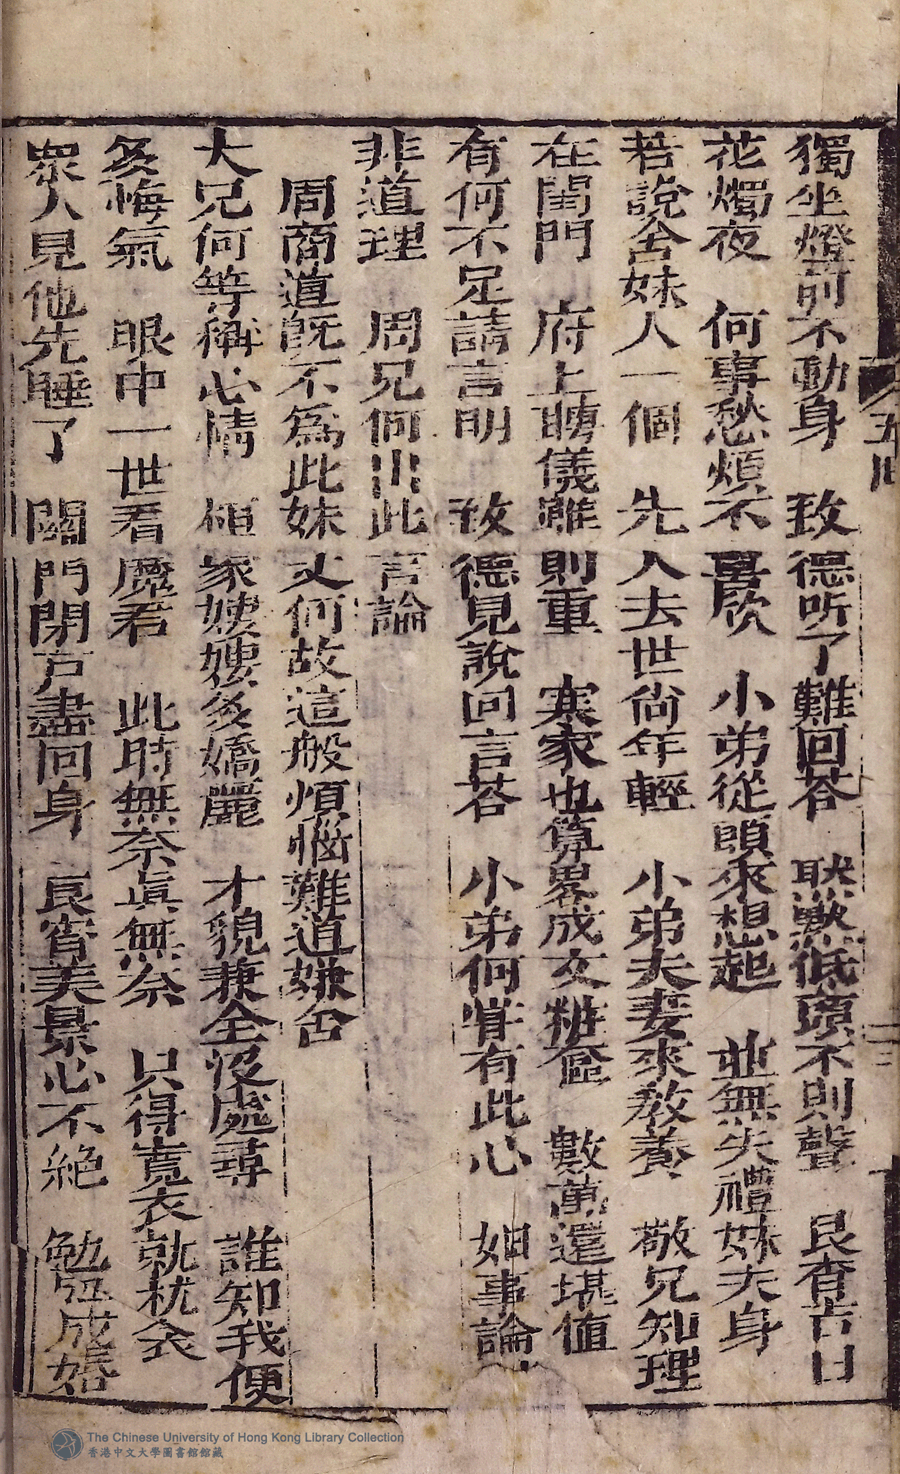 獨坐燈前不動身　致德听了難回荅　默默低頭不則聲　良宵吉日
花燭夜　何事愁煩不喜欣　小弟從頭來想起　並無失禮妹夫身
若說舍妹人一個　先人去世尚年輕　小弟夫妻來教養　敬兄知理
在閨門　府上聘儀雖則重　寒家也算畧成文　粧奩數萬還堪值
有何不足請言明　致德見說回言荅　小弟何嘗有此心　姻事論
非道理　周兄何出此言論
周商道既不為此妹丈何故這般煩惱難道嫌舍
大兄何等稱心情　傾家嫂嫂多嬌麗　才貌兼全没處尋　誰知我便
多悔氣　眼中一世看魔君　此時無奈眞無奈　只得寬衣就枕衾
眾人見他先睡了　關門閉戶盡回身　良宵美景心不絕　勉強成婚
五回
The Chinese University of Hong Kong Library Collection
香港中文大學圖書館館藏